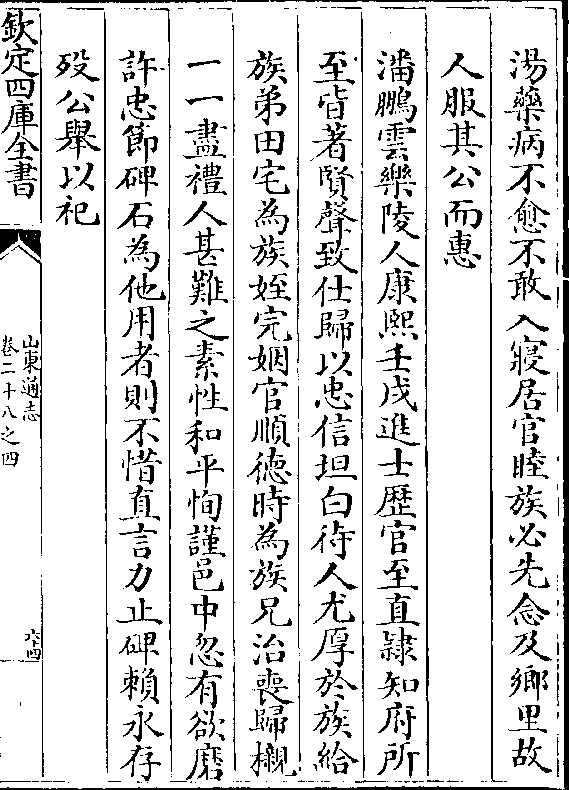 湯藥病不愈不敢入寢居官睦族必先念及鄉里故
人服其公而惠
潘鵬雲樂陵人康熙壬戌進士歷官至直隸知府所
至皆著賢聲致仕歸以忠信坦白待人尤厚於族給
族弟田宅為族姪完姻官順德時為族兄治喪歸櫬
一一盡禮人甚難之素性和平恂謹邑中忽有欲磨
許忠節碑石為他用者則不惜直言力止碑賴永存
歿公舉以祀
欽定四庫全書
山東通志
卷二十八之四
六十四